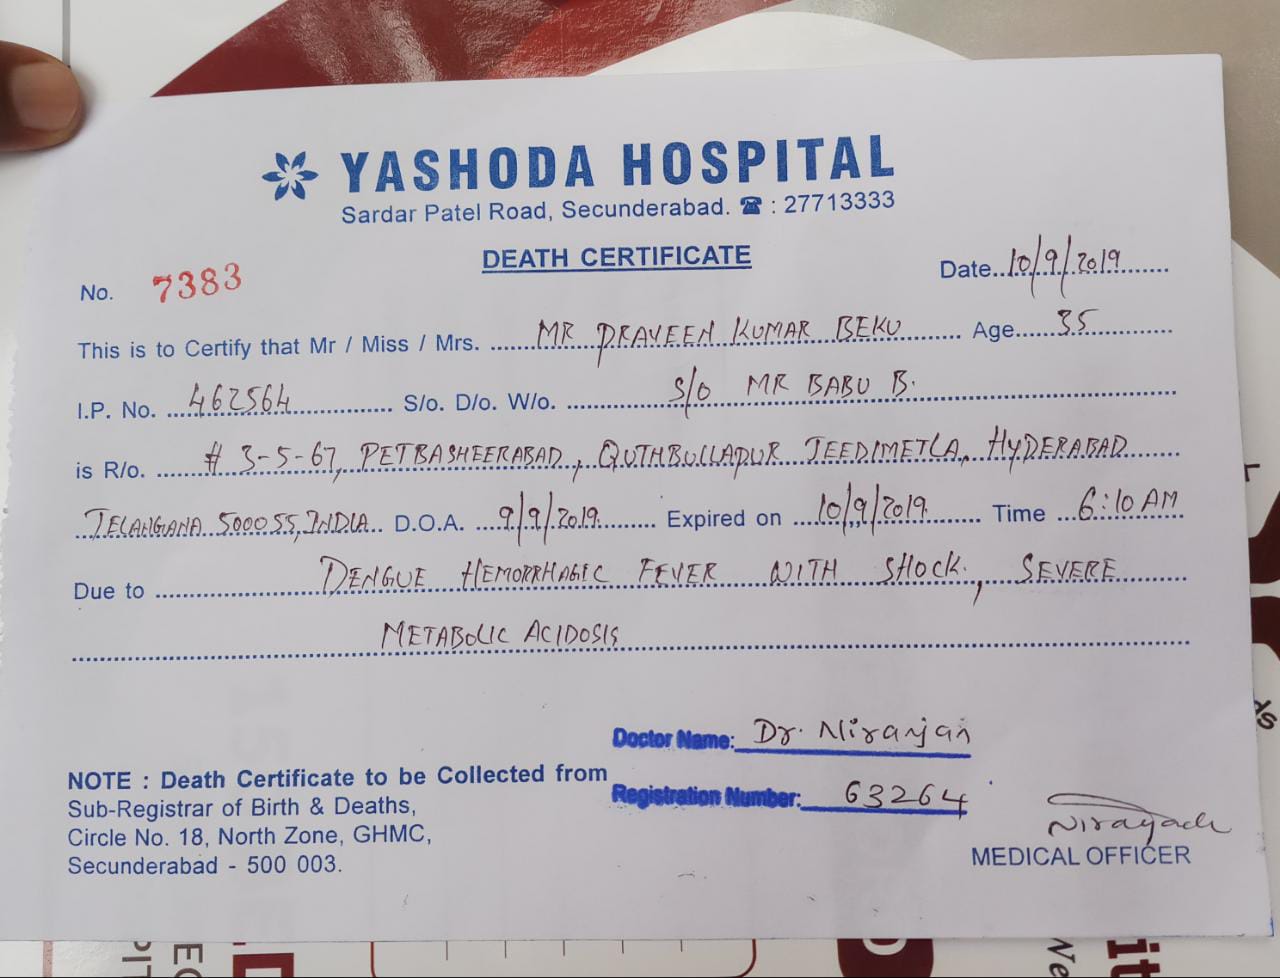 YASHODA HOSPITAL
Sardar Patel Road, Secunderabad. ☎ : 27713333
DEATH CERTIFICATE
No. 7383 Date..10/9/2019
This is to Certify that Mr / Miss / Mrs. MR PRAVEEN KUMAR BEKU Age 35
I.P. No. 462564 S/o. D/o. W/o. S/O MR BABU B.
is R/o. # 3-5-67, PETBASHEERABAD, QUTHBULLAPUR JEEDIMETLA, HYDERABAD
TELANGANA 500055, INDIA D.O.A. 9/9/2019 Expired on 10/9/2019 Time 6:10 AM
Due to DENGUE HEMORRHAGIC FEVER WITH SHOCK, SEVERE
METABOLIC ACIDOSIS
Doctor Name: Dr. Niranjan
Registration Number: 63264
NOTE : Death Certificate to be Collected from
Sub-Registrar of Birth & Deaths,
Circle No. 18, North Zone, GHMC,
Secunderabad - 500 003.
MEDICAL OFFICER